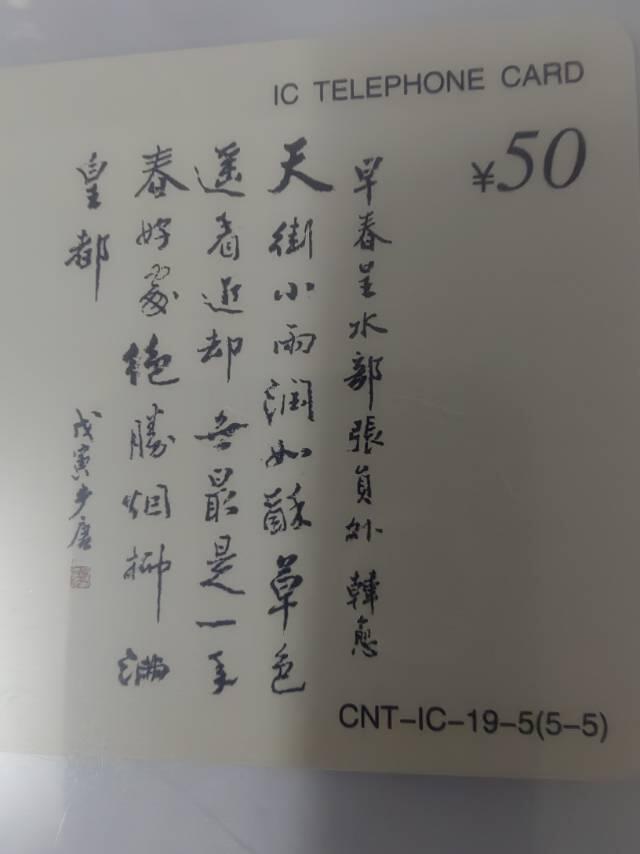 IC TELEPHONE CARD
¥50
早春呈水部張員外 韓愈
天街小雨潤如酥草色
遥看近却無最是一年
春好處絶勝烟柳滿
皇都
戊寅
CNT-IC-19-5(5-5)